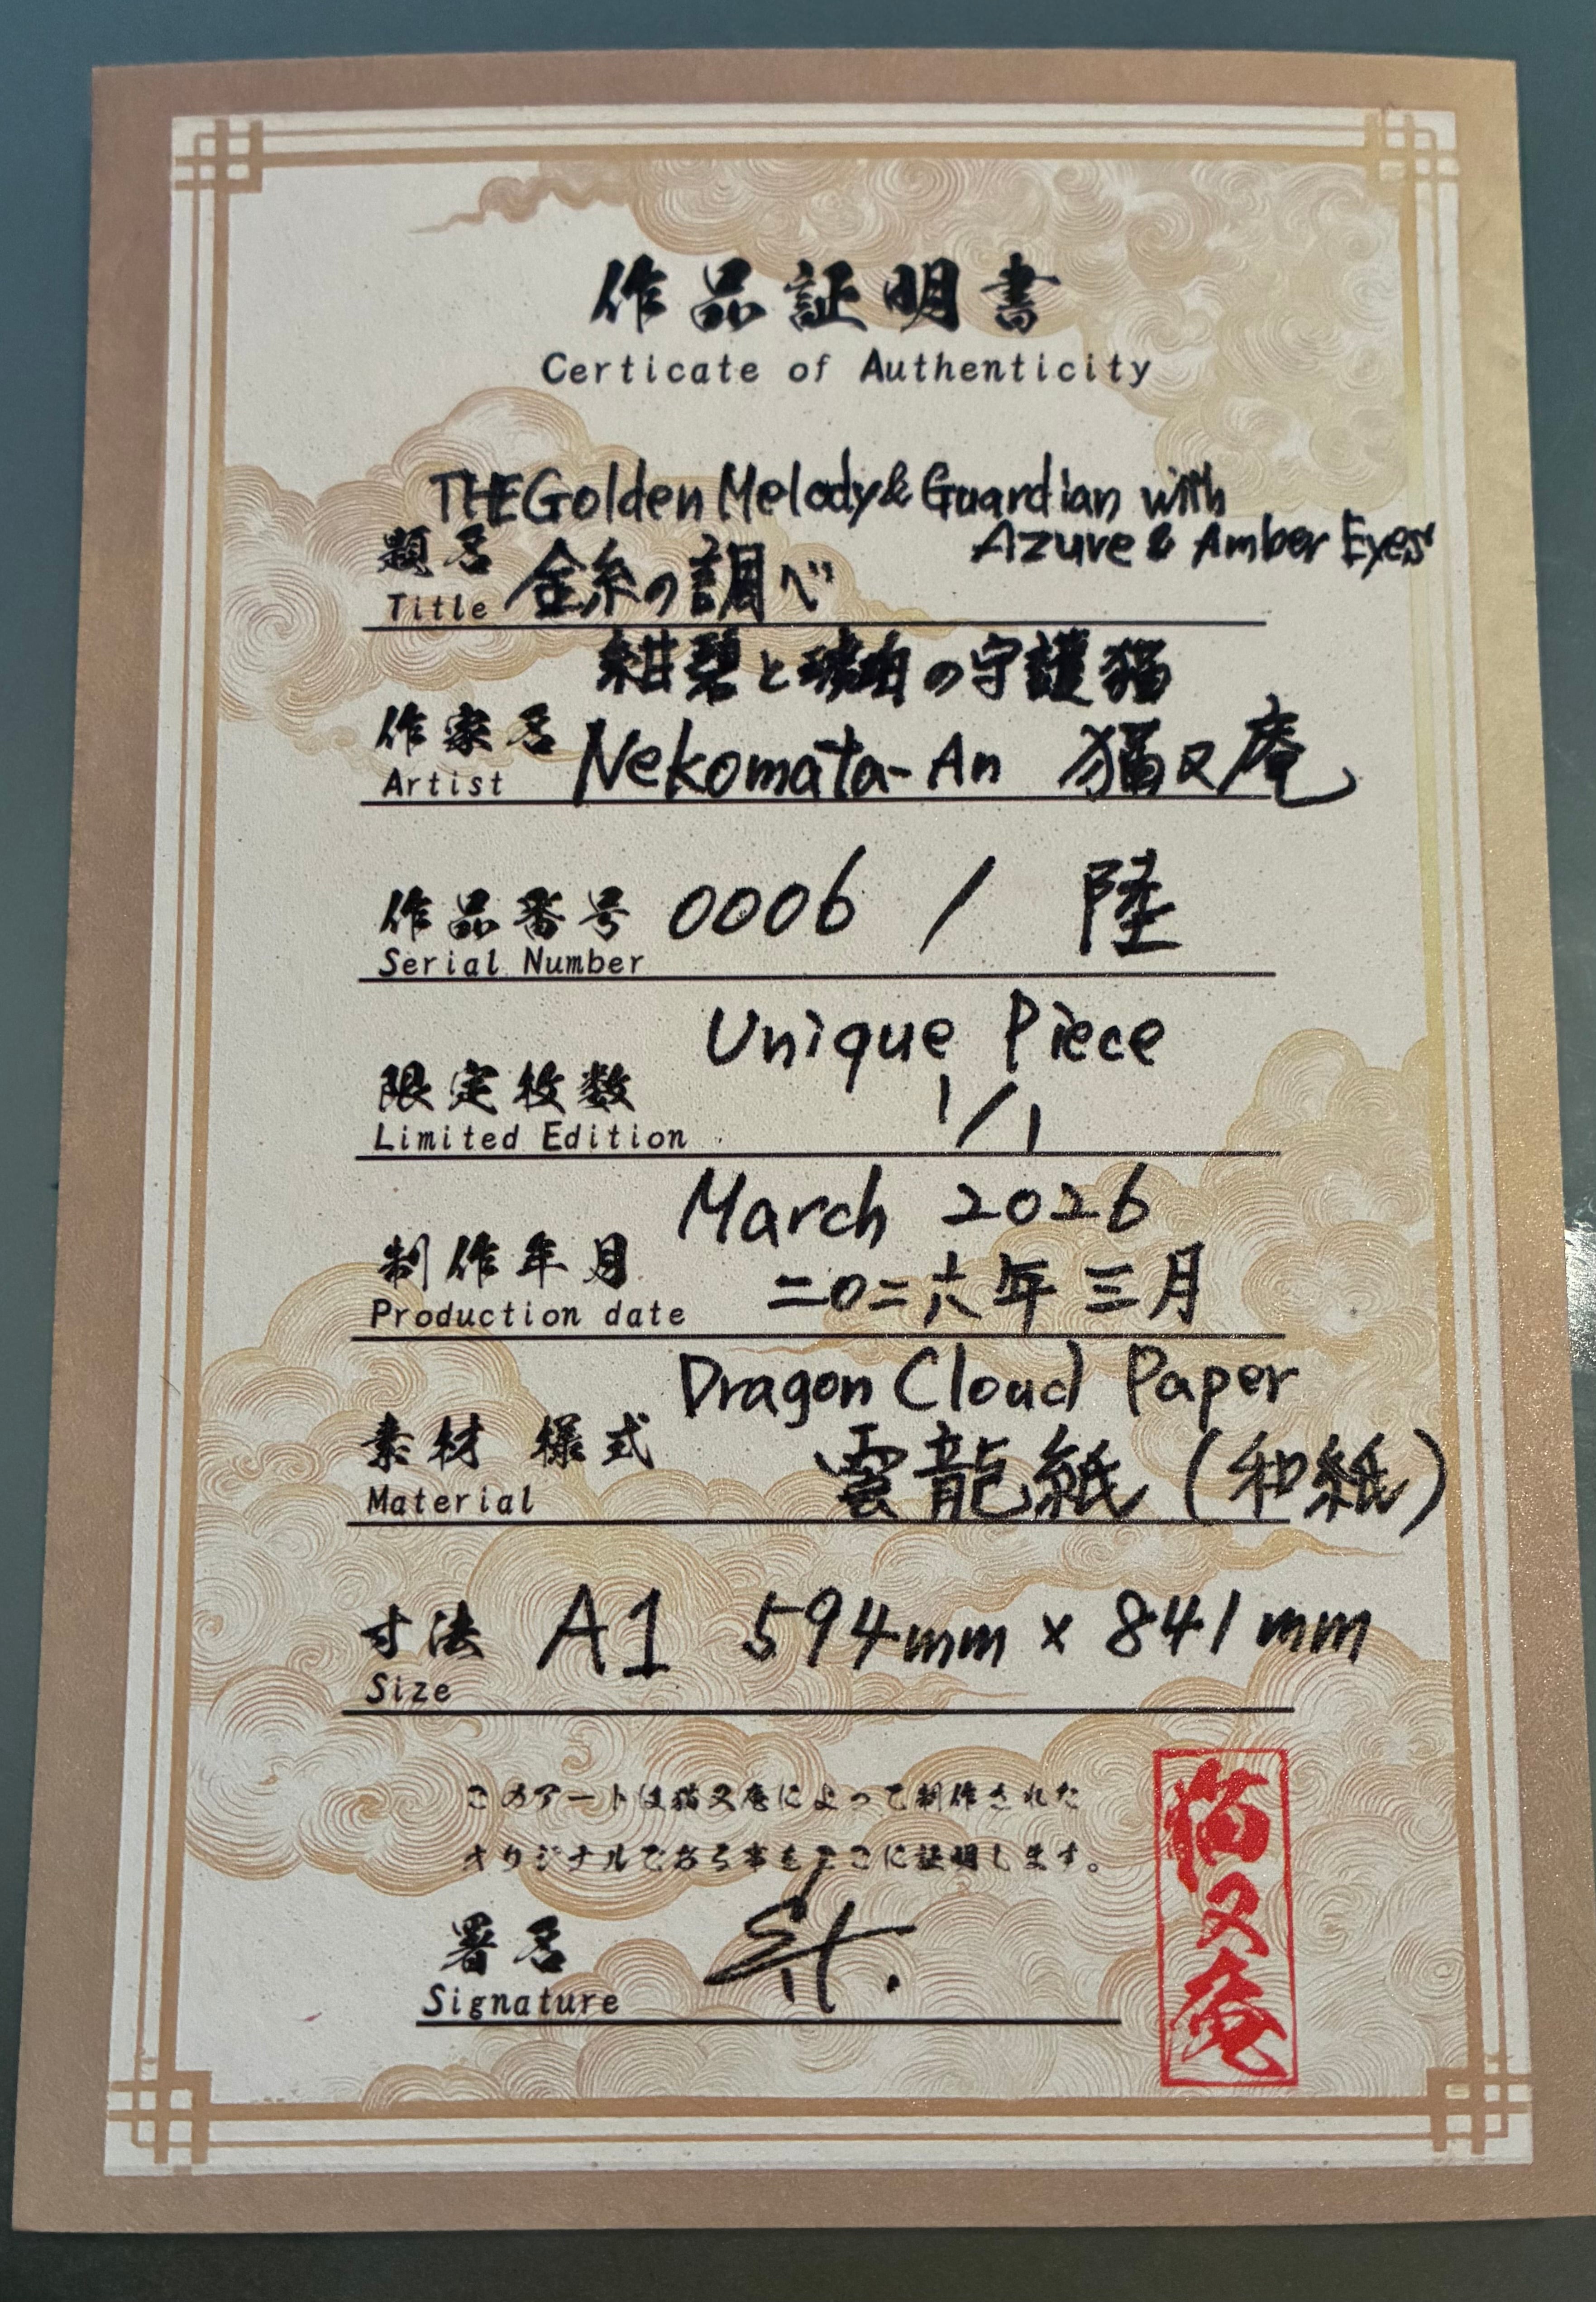 作品証明書
Certicate of Authenticity
THE Golden Melody & Guardian with
Azure & Amber Eyes
題名 金糸の調べ
Title
紺碧と琥珀の守護猫
作家名 Nekomata-An 猫又庵
Artist
作品番号 0006 / 陸
Serial Number
Unique Piece
限定枚数 1/1
Limited Edition
March 2026
制作年月 二〇二六年三月
Production date
Dragon Cloud Paper
素材 様式 雲龍紙(和紙)
Material
寸法 A1 594mm × 841mm
Size
このアートは猫又庵によって制作された
オリジナルである事をここに証明します。
署名
Signature
猫又庵